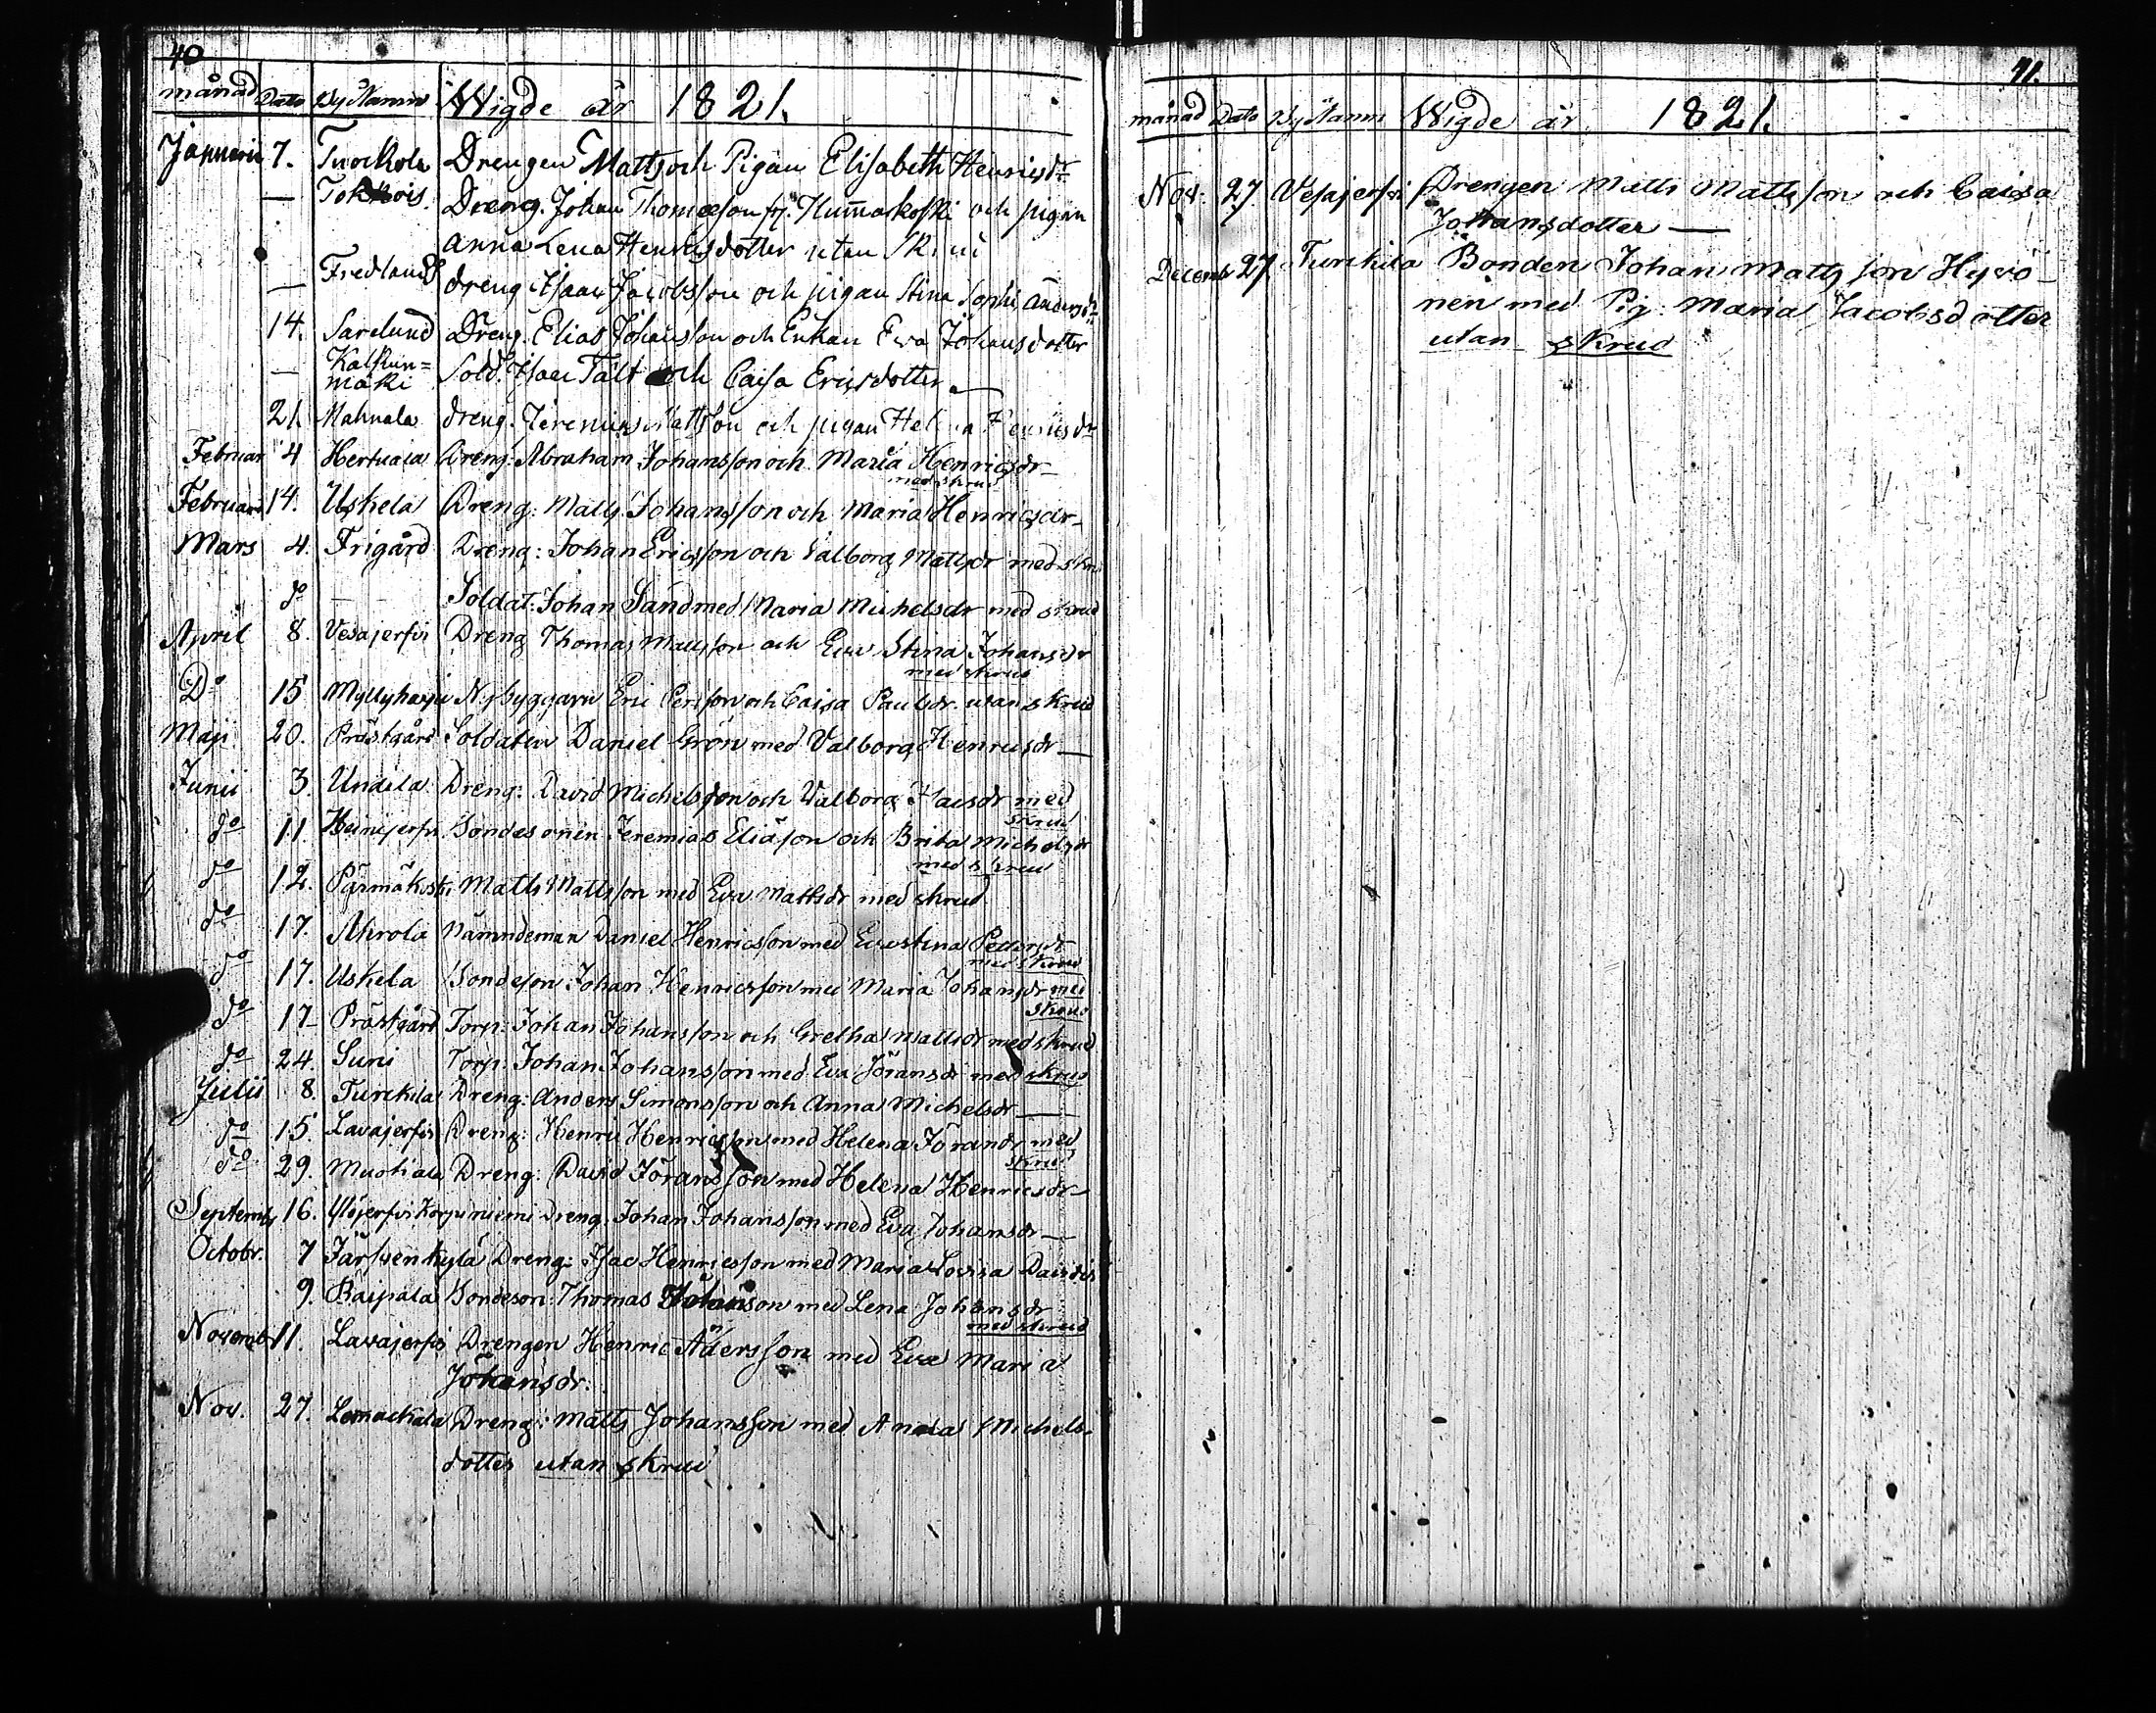 40
månad Dato Bystamn Wigde år 1821.
Januerii 7. Tuorkola Drengen Matts och Pigan Elisabeth Henricsdr
— Tokkois. Dreng. Johan Thomasson fr. Hummakoski och pigan
Anna Lena Henricsdotter utan Skrud
— Fredlund Dreng Isaac Jacobsson och pigan Stina Sophi Andersdr
14. Sarelund Dreng. Elias Johansson och Enkan Ewa Johansdotter
— Kalkun=
mäki Sold. Isac Tält och Caisa Ericsdotter —
21. Mahnala Dreng. Jeremias Mattsson och pigan Helena Henricsdr
Februar 4 Hertuala Dreng: Abraham Johansson och Maria Henricsdr —
med skrud
Februari 14. Uskela Dreng: Matts Johansson och Maria Henricsdr —
Mars 4. Frigård Dreng: Johan Ericsson och Valborg Mattsdr med skru
do — Soldat: Johan Sand med Maria Michelsdr med skrud
April 8. Vesajerfvi Dreng Thomas Mattsson och Eva Stina Johansdr
med skrud
Do 15 Myllyharju Nybyggaren Eric Persson och Caisa Paulsdr. utan skrud
Maji 20. Pröstgård Soldaten Daniel Grön med Valborg Henricsdr —
Junii 3. Undila Dreng: David Michelsson och Valborg Isacsdr med
skrud
do 11. Heinijerfvi Bondesonen Jeremias Eliæson och Brita Michelsdr
med skrud
do 12. Pärmäkoski Matts Mattsson med Eva Mattsdr med skrud
do 17. Ahrola Nämndeman Daniel Henricsson med Evastina Pettersdr
med skrud
do 17. Uskela Bondeson Johan Henricsson med Maria Johansdr med
skrud
do 17 – Pröstgård Torp: Johan Johansson och Gretha Mattsdr med skrud
do 24. Suni Torp: Johan Johansson med Eva Jöransdr med skrud
Julii 8. Turckila Dreng: Anders Simonsson och Anna Michelsdr —
do 15. Lavajerfvi Dreng: Henric Henricsson med Helena Jörandr med
skrud
do 29. Mustiala Dreng: David Jöransson med Helena Henricsdr —
Septemb 16. Ylöjerfvi Korpiniemi Dreng. Johan Johansson med Eva Johansdr —
Octobr. 7 Järfvenkylä Dreng: Isac Henricsson med Maria Lovisa Davidsdr
9. Raipala Bondeson: Thomas Johansson med Lena Johansdr
med skrud
Novemb 11. Lavajerfvi Drengen Henric Andersson med Eva Maria
Johansdr.
Nov. 27. Lemackala Dreng: Matts Johansson med Anna Michels-
dotter utan skrud
41.
månad Dato Bystamn Wigde år 1821.
Nov. 27 Vesajerfvi Drengen Matts Mattsson och Caisa
Johansdotter —
Decemb 27 Turckila Bonden Johan Mattsson Hyvö-
nen med Pig: Maria Jacobsdotter
utan skrud